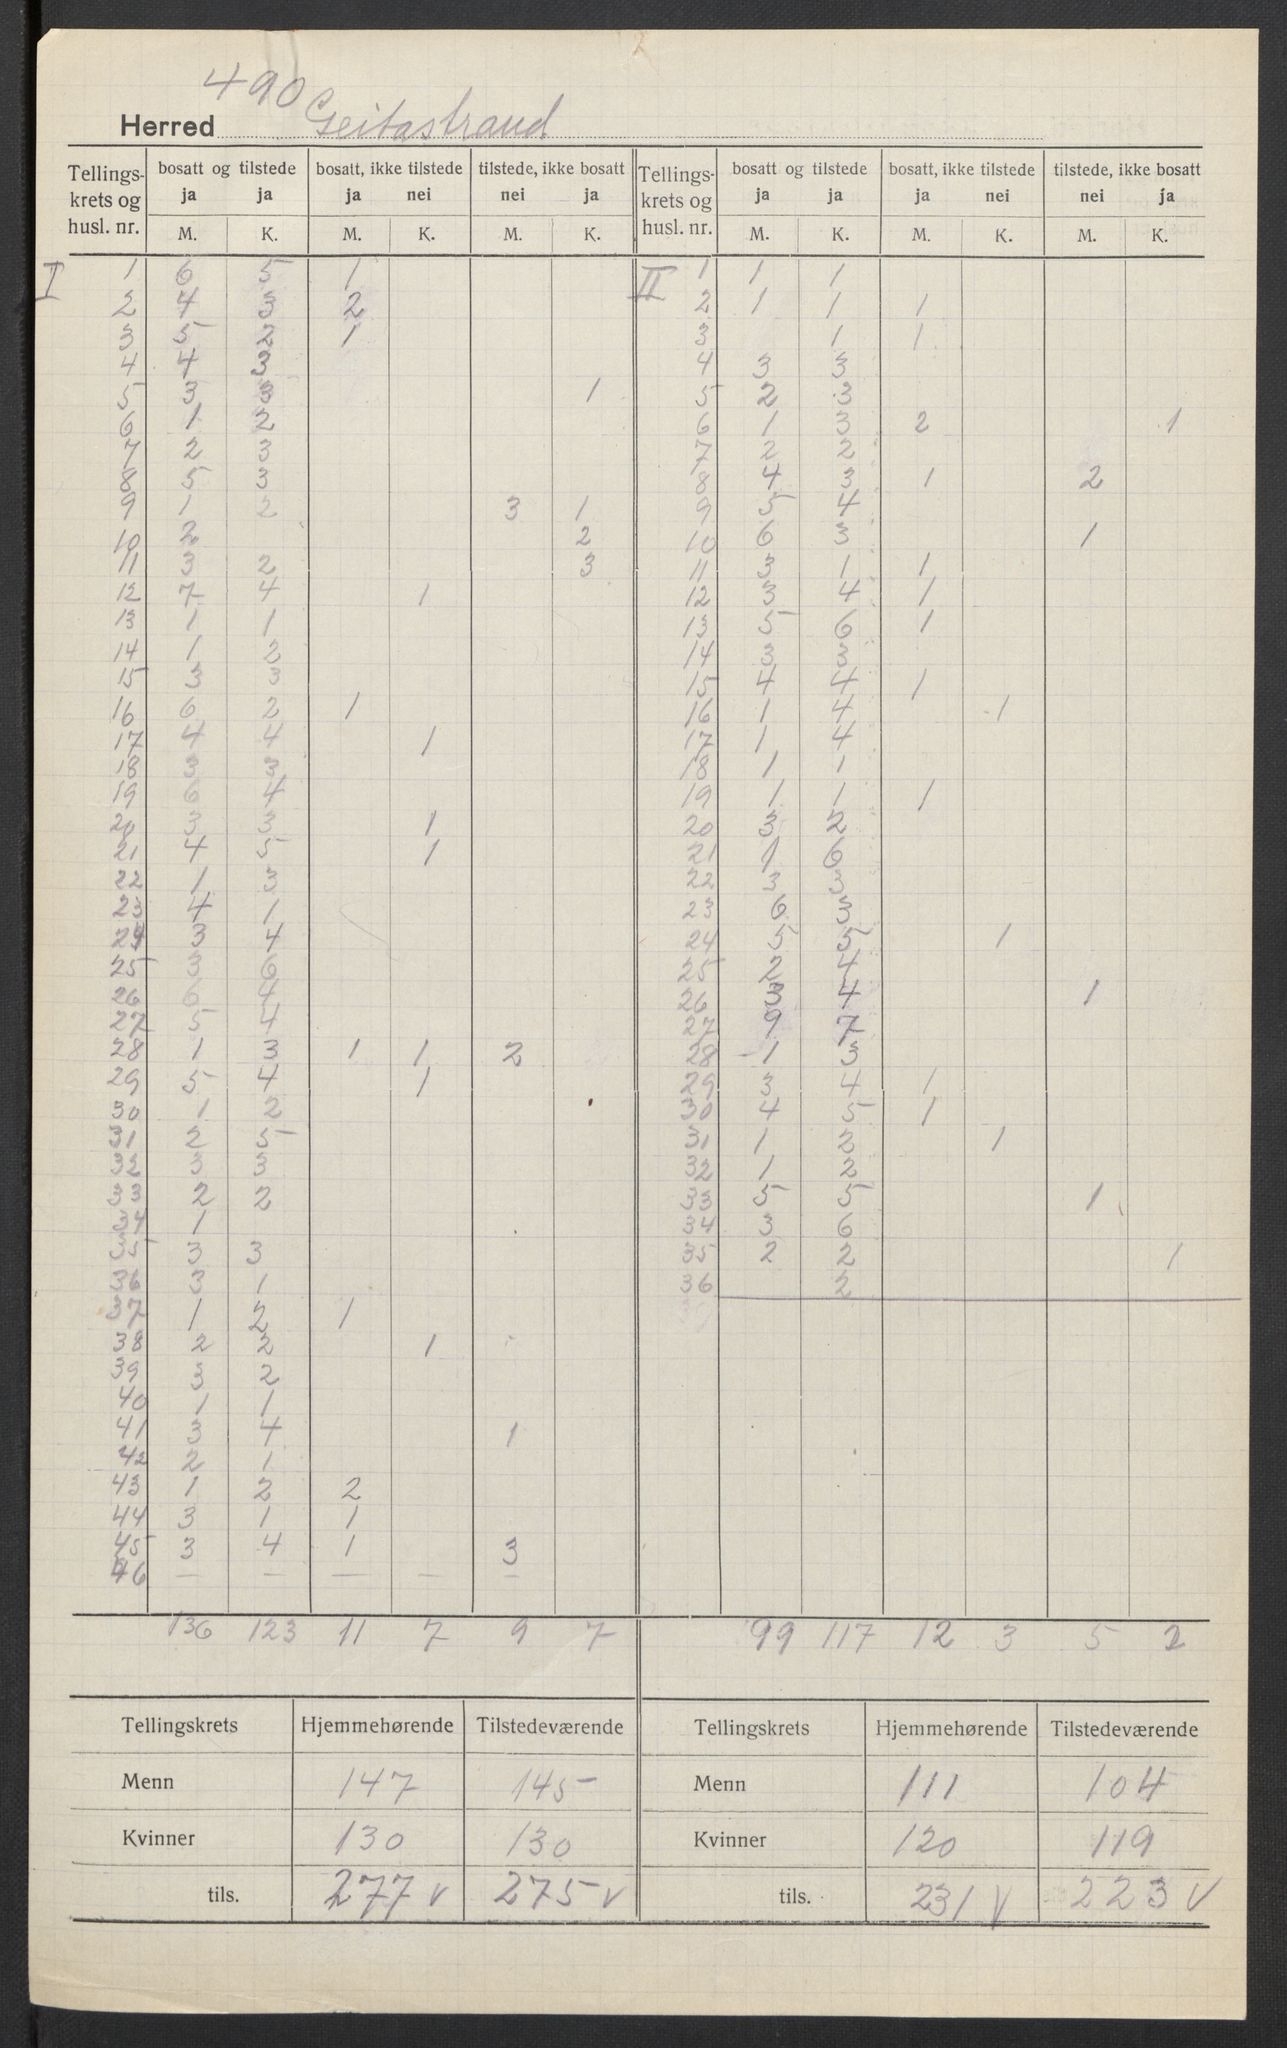 490
Herred Geitastrand
Tellings- krets og husl. nr. | bosatt og tilstede ja ja | bosatt, ikke tilstede ja nei | tilstede, ikke bosatt nei ja | Tellings- krets og husl. nr. | bosatt og tilstede ja ja | bosatt, ikke tilstede ja nei | tilstede, ikke bosatt nei ja
M. K. M. K. M. K. M. K. M. K. M. K.
I 1 6 5 1 | II 1 1 1
2 4 3 2 | 2 1 1 1
3 5 2 1 | 3 1 1
4 4 3 | 4 3 3
5 3 3 1 | 5 2 3
6 1 2 | 6 1 3 2 1
7 2 3 | 7 2 2
8 5 3 | 8 4 3 1 2
9 1 2 3 1 | 9 5 4
10 2 2 | 10 6 3 1
11 3 2 3 | 11 3 1 1
12 7 4 1 | 12 3 4 1
13 1 1 | 13 5 6 1
14 1 2 | 14 3 3
15 3 3 | 15 4 4 1
16 6 2 1 | 16 1 4 1
17 4 4 1 | 17 1 4
18 3 3 | 18 1 1
19 6 4 | 19 1 1 1
20 3 3 1 | 20 3 2
21 4 5 1 | 21 1 6
22 1 3 | 22 3 3
23 4 1 | 23 6 3
24 3 4 | 24 5 5 1
25 3 6 | 25 2 4
26 6 4 | 26 3 4 1
27 5 4 | 27 9 7
28 1 3 1 1 2 | 28 1 3
29 5 4 1 | 29 3 4 1
30 1 2 | 30 4 5 1
31 2 5 | 31 1 2 1
32 3 3 | 32 1 2
33 2 2 | 33 5 5 1
34 1 | 34 3 6
35 3 3 | 35 2 2 1
36 3 1 | 36 2
37 1 2 1
38 2 2 1
39 3 2
40 1 1
41 3 4 1
42 2 1
43 1 2 2
44 3 1 1
45 3 4 1 3
46 — — — — —
136 123 11 7 9 7 | 99 117 12 3 5 2
Tellingskrets | Hjemmehørende | Tilstedeværende | Tellingskrets | Hjemmehørende | Tilstedeværende
Menn 147 145 | Menn 111 104
Kvinner 130 130 | Kvinner 120 119
tils. 277 v 275 v | tils. 231 v 223 v